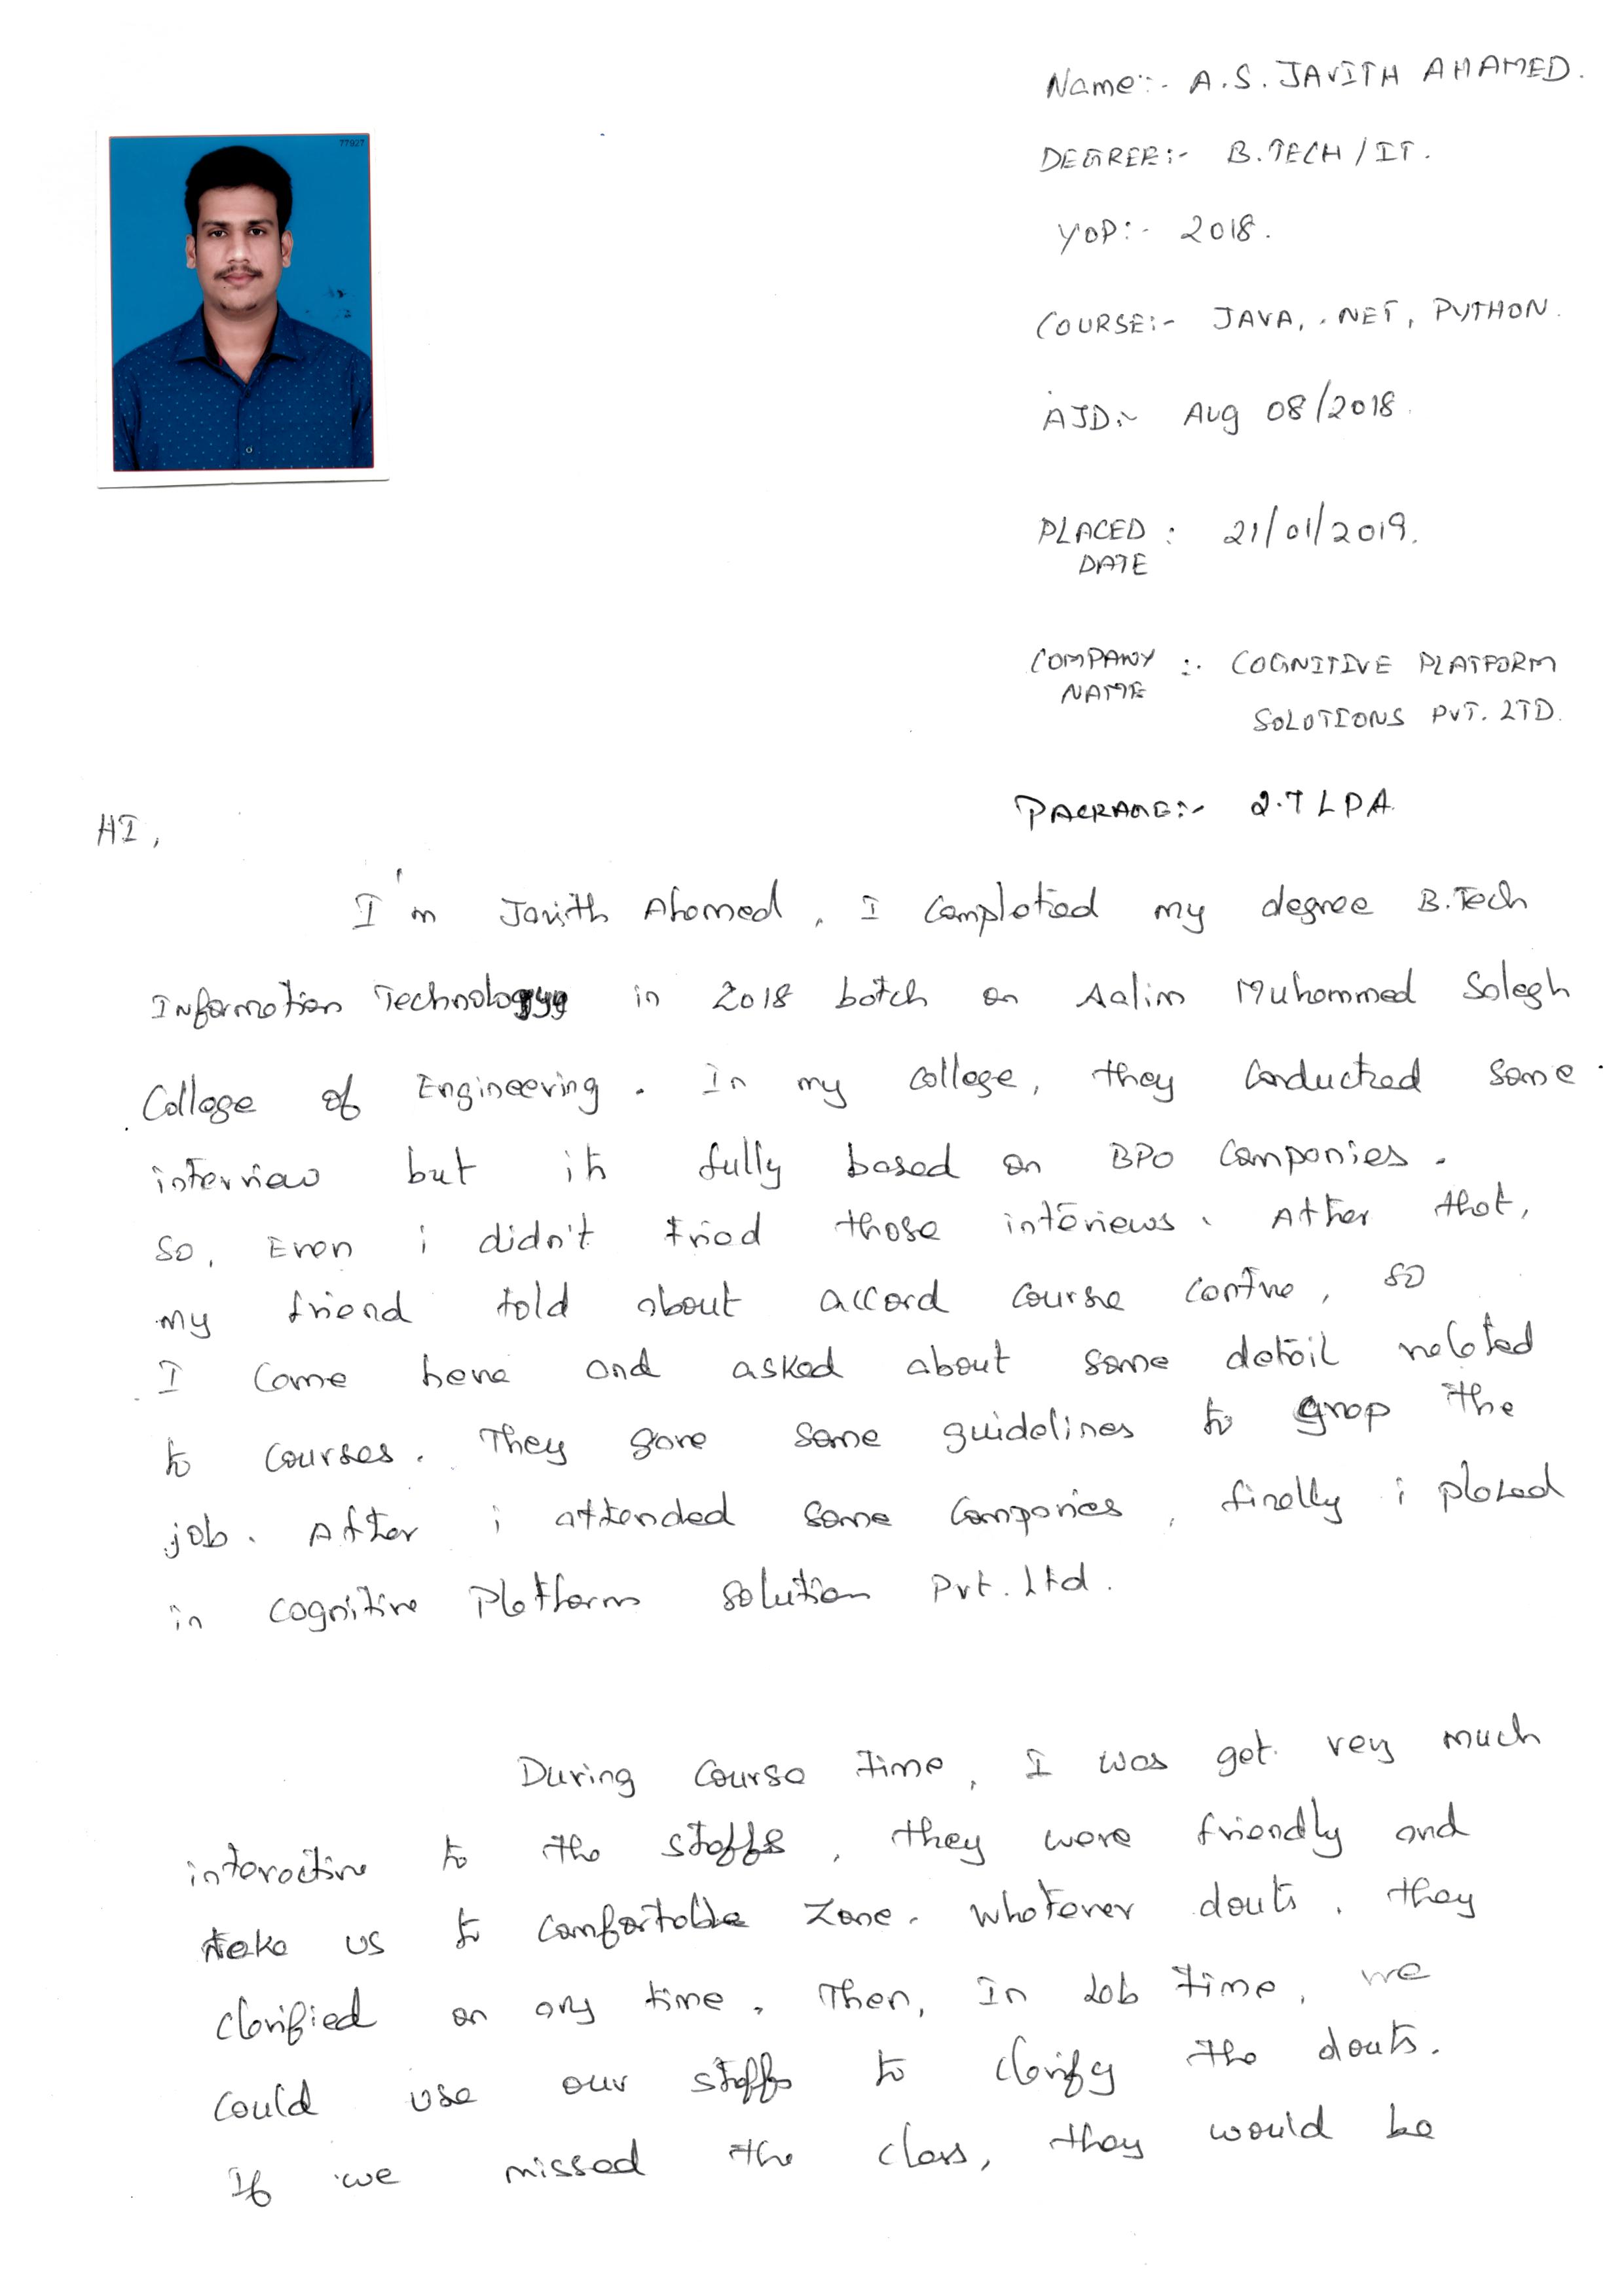 77927
Name:- A.S. JAVITH AHAMED.
DEGREE:- B.TECH / IT.
YOP:- 2018.
COURSE:- JAVA, .NET, PYTHON.
AJD:- Aug 08/2018.
PLACED : 21/01/2019.
DATE
COMPANY :- COGNITIVE PLATFORM
NAME
SOLUTIONS PVT. LTD.
PACKAGE:- 2.7 LPA.
HI,
I'm Javith Ahamed, I completed my degree B.Tech
Information Technology in 2018 batch on Aalim Muhammed Salegh
College of Engineering. In my college, they conducted some
interview but its fully based on BPO companies.
So, Even i didn't tried those interviews. After that,
my friend told about accord course centre, so
I came here and asked about some detail related
to courses. They gave some guidelines to grap the
job. After i attended some companies, finally i placed
in cognitive Platform solution Pvt. Ltd.
During course time, I was get very much
interactive to the staffs, they were friendly and
take us to comfortable zone. whatever douts, they
clarified on any time. Then, In Job time, we
could use our staffs to clarify the douts.
If we missed the class, they would be